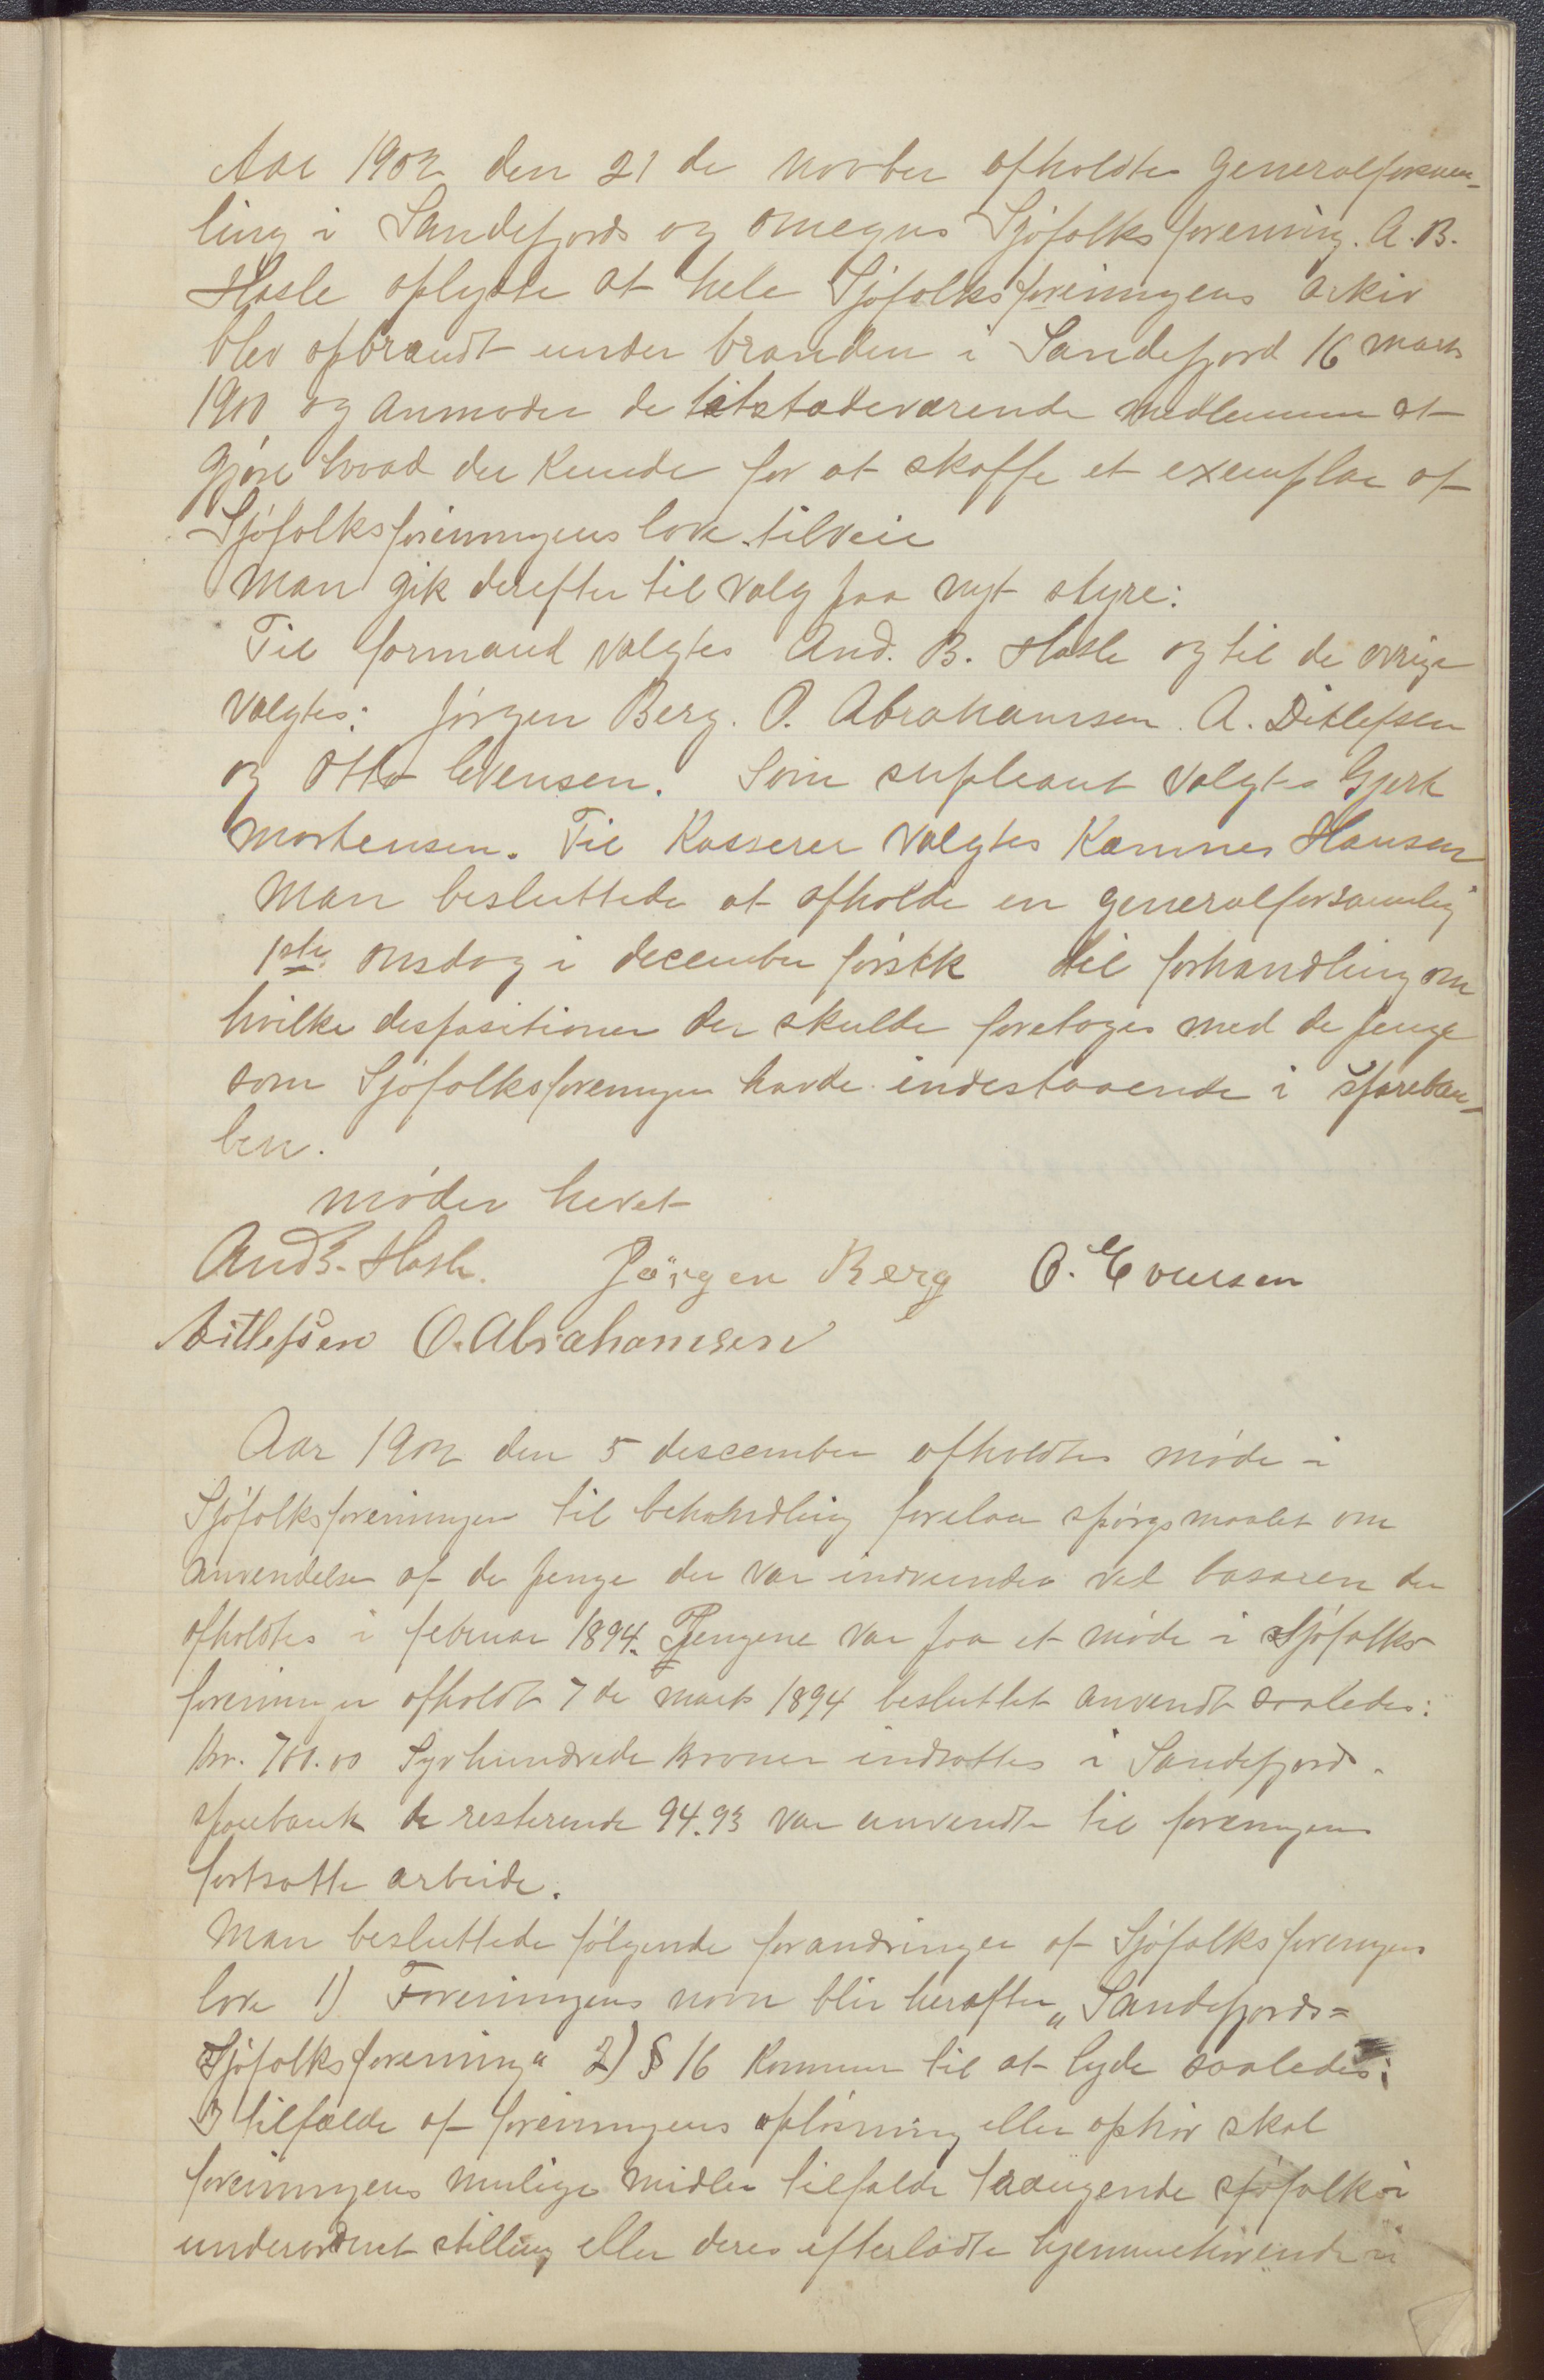 Aar 1902 den 21 de novber afholdtes generalforsam-
ling i Sandefjords og omegns Sjøfolksforening. A. B.
Hasle oplyste at hele Sjøfolksforeningens arkiv
blev opbrændt under branden i Sandefjord 16 marts
1900 og anmoder de tilstedeværende medlemmer at
gjøre hvad der kunde for at skaffe et exemplar af
Sjøfolksforeningens love tilveie
Man gik derefter til valg paa nyt styre:
Til formand valgtes And. B. Hasle og til de øvrige
valgtes: Jørgen Berg. O. Abrahamsen. A. Ditlefsen
og Otto Evensen. Som supleant valgtes Gjert
Mortensen. Til Kasserer valgtes Kæmner Hansen
Man besluttede at afholde en generalforsamling
1ste onsdag i december førstk til forhandling om
hvilke dispositioner der skulde foretages med de penge
som Sjøfolksforeningen havde indestaaende i spareban-
ken.
mødet hevet
And B. Hasle. Jörgen Berg O. Evensen
A Ditlefsen O. Abrahamsen
Aar 1902 den 5 descember afholdtes møde i
Sjøfolksforeningen til behandling forelaa spørgsmaalet om
anvendelse af de penge der var indvundet ved basaren der
afholdtes i februar 1894. Pengene var paa et møde i Sjøfolks-
foreningen afholdt 7 de marts 1894 besluttet anvendt saaledes:
Kr. 700.00 Syvhundrede kroner indsættes i Sandefjords
sparebank de resterende 94.93 var anvendt til foreningens
fortsatte arbeide.
Man besluttede følgende forandringer af Sjøfolksforeningens
love 1) Foreningens navn blir herefter „Sandefjords=
Sjøfolksforening“ 2) § 16 kommer til at lyde saaledes:
I tilfælde af foreningens opløsning eller ophør skal
foreningens mulige midler tilfalde trængende sjøfolk i
underordnet stilling eller deres efterladte hjemmehørende i